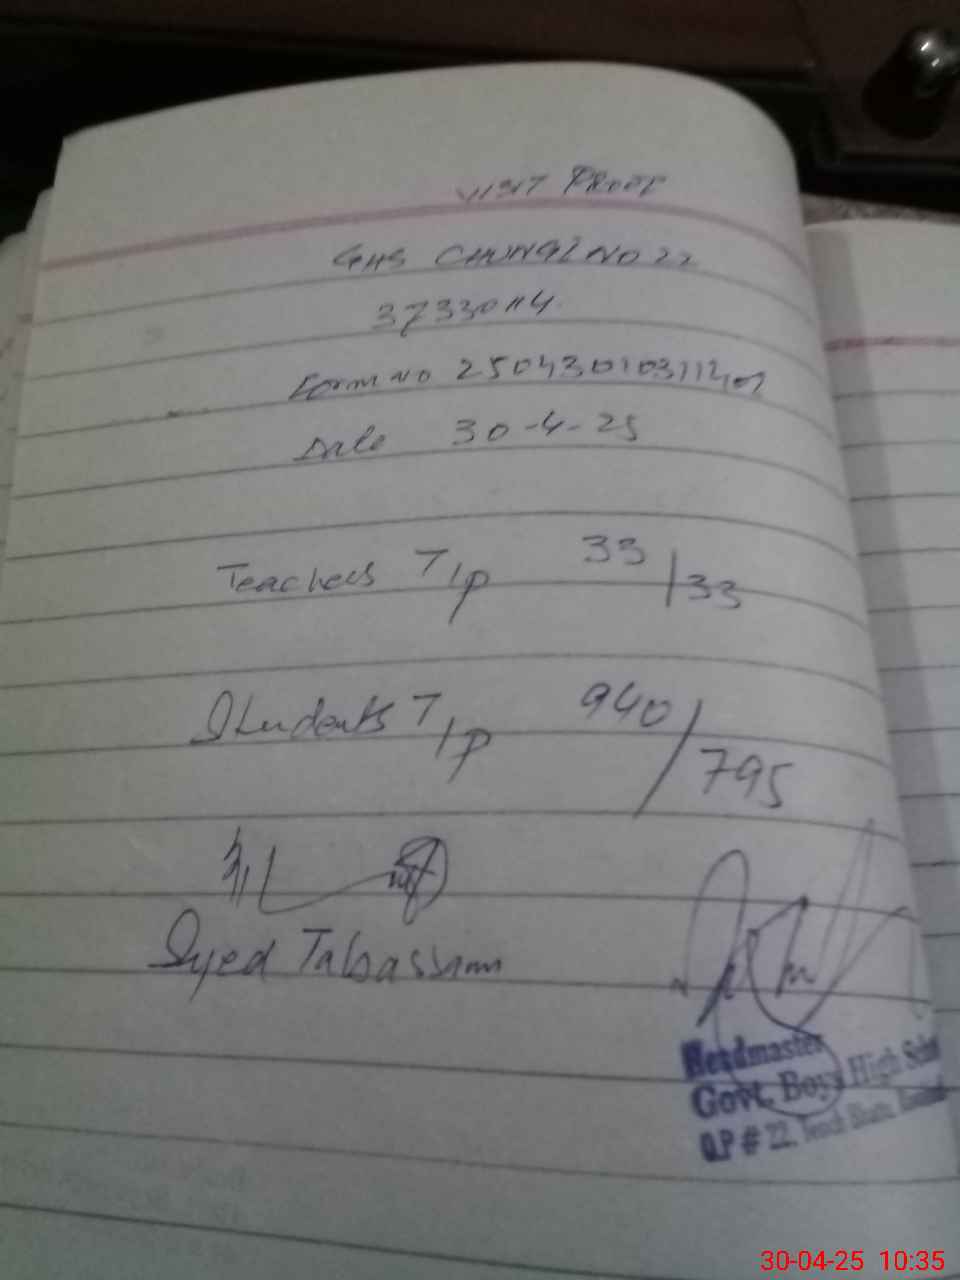 VISIT PROOF
GHS CHUNGI NO 22
37330114
Form No 250430103112401
Date 30-4-25
Teachers T/P 33/33
Students T/P 940/795
Syed Tabassam
Headmaster
Govt. Boys High School
O.P # 22,
30-04-25 10:35